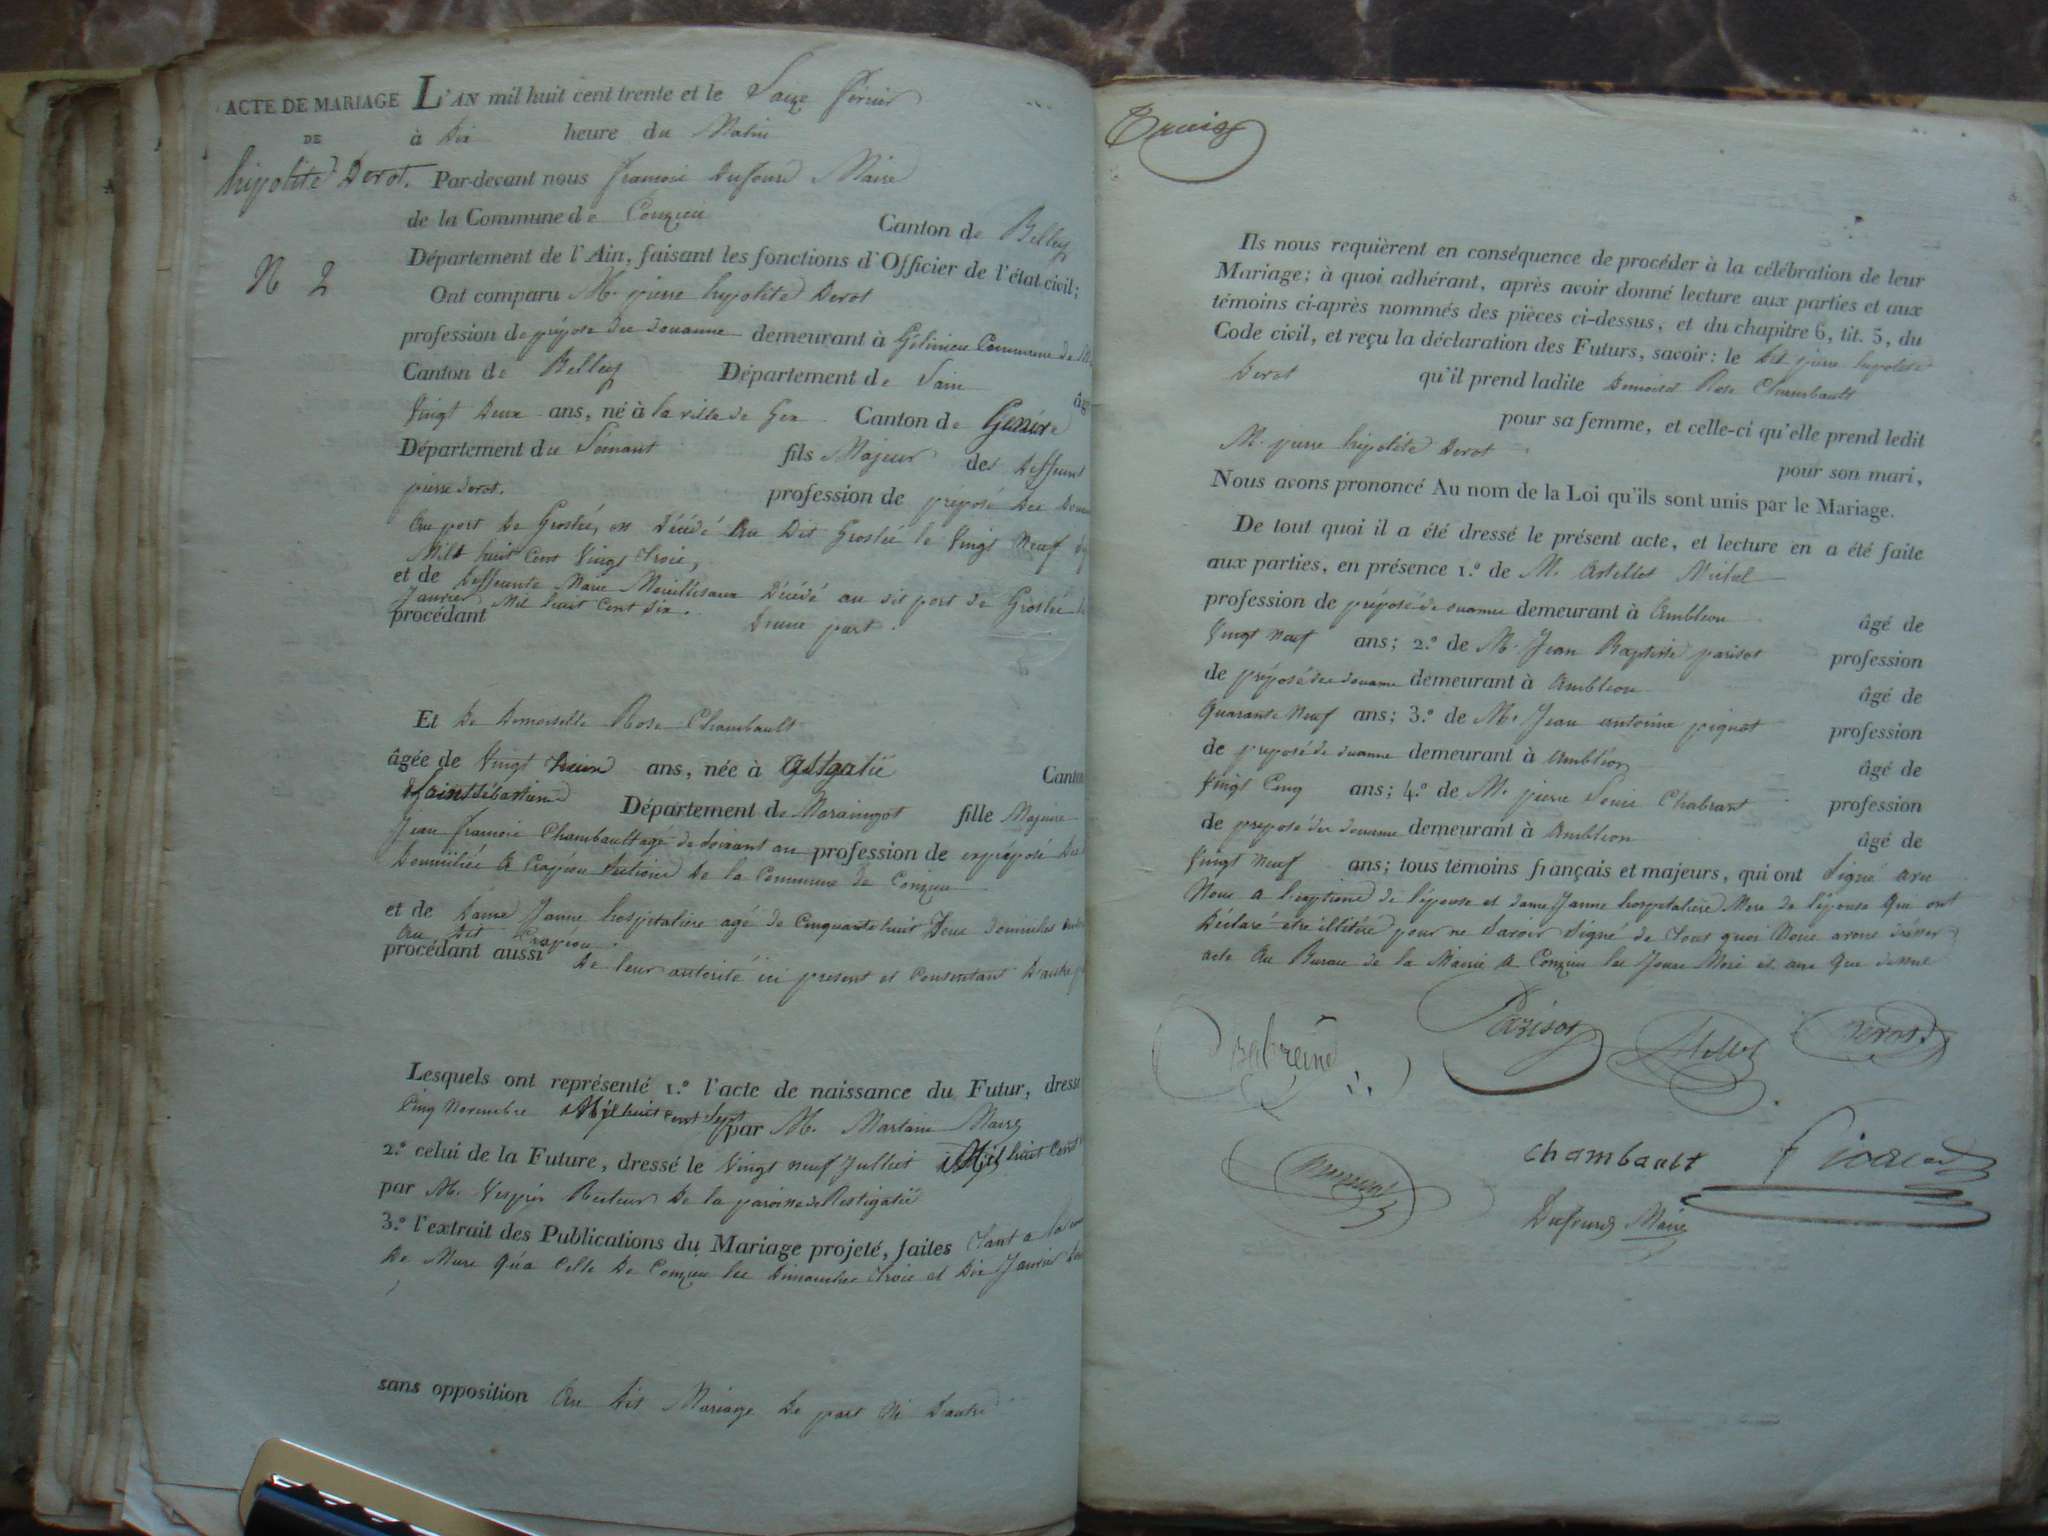 ACTE DE MARIAGE
DE
hipolite Derot.
N 2
L'AN mil huit cent trente et le Saize fevrier
à Dix heure du Matin
Par-devant nous francois Dufourd Maire
de la Commune de Conzieu Canton de Belley
Département de l'Ain, faisant les fonctions d'Officier de l'état civil;
Ont comparu M. pierre hypolite Derot
profession de préposé des douanne demeurant à Gélinieu Commune de
Canton de Belley Département de Lain âg
Vingt Deux ans, né à la ville de Gex Canton de Genève
Département du Lément fils Majeur des Deffeunt
pierre derot. profession de préposé Des Doua
Au port De Groslée, et Décédé Au Dit Groslée le Vingt Neuf
Mil huit Cent Vingt Trois,
et de Deffeunte Marie Décédé au dit port de Groslée
Janvier Mil huit Cent Dix.
procédant D'une part.
Et De Demoiselle Rose Chambault
âgée de Vingt ans, née à Canton
Saint Sébastien Département de fille Majeure
Jean francois Chambault agé de soixant an profession de expréposé Des
Domiciliée A Crapéou Section De la Commune de Conzieu
et de Dame Janne hospitalière agé de Cinquante huit Deux domiciles
Au Dit Crapéou.
procédant aussi De leur autorité ici present et Consentant D'autre p
Lesquels ont représenté 1.º l'acte de naissance du Futur, dressé
Cinq Novembre Mil huit cent Sept par M. Martain Maire
2.º celui de la Future, dressé le Vingt neuf Julliet Mil huit Cent
par M. Vespér Recteur De la paroisse de Restigatié
3.º l'extrait des Publications du Mariage projeté, faites Tant a la
De Mure Qu'a Celle De Conzieu les Dimanches Trois et Dix Janvier
sans opposition Au Dit Mariage De part Ni D'autre
Ils nous requièrent en conséquence de procéder à la célébration de leur
Mariage; à quoi adhérant, après avoir donné lecture aux parties et aux
témoins ci-après nommés des pièces ci-dessus, et du chapitre 6, tit. 5, du
Code civil, et reçu la déclaration des Futurs, savoir: le Dit pierre hipolite
Derot qu'il prend ladite Demoiselle Rose Chambault
pour sa femme, et celle-ci qu'elle prend ledit
M. pierre hipolite Derot
pour son mari,
Nous avons prononcé Au nom de la Loi qu'ils sont unis par le Mariage.
De tout quoi il a été dressé le présent acte, et lecture en a été faite
aux parties, en présence 1.º de M. Astellet
profession de préposé de douanne demeurant à Ambléon âgé de
Vingt neuf ans; 2.º de M. Jean Baptiste parisot profession
de préposé des douanne demeurant à Ambléon âgé de
Quarante Neuf ans; 3.º de M. Jean antoinne pignot profession
de preposé de douanne demeurant à Ambléon âgé de
Vingt Cinq ans; 4.º de M. pierre Louis Chabrant profession
de preposé des douanne demeurant à Ambléon âgé de
Vingt neuf ans; tous témoins français et majeurs, qui ont Signé avec
Nous a l'exptions de l'épouse et dame Janne hospitalière Mere de l'épouse Qui ont
Déclaré etre illitéré pour ne Savoir Signé de Tout quoi Nous avons Dréssér
acte Au Bureau de la Mairie A Conzieu les Jour Mois et an Que dessus
Parisot
Derot
Chambault
Dufourd Maire